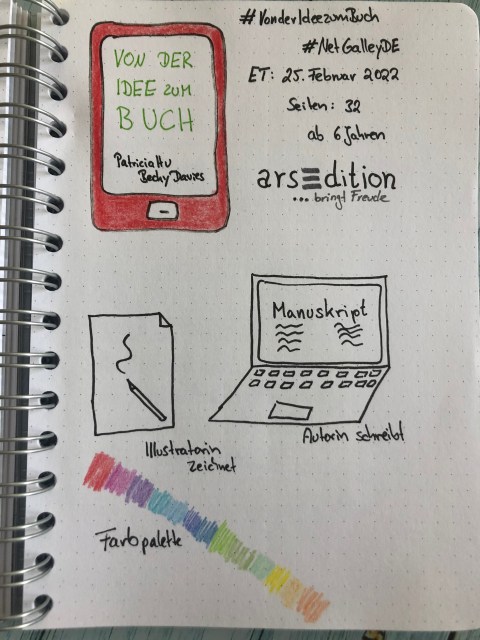 VON DER
IDEE ZUM
BUCH
Patricia Hu
Becky Davies
#VonderIdeezumBuch
#NetGalleyDE
ET: 25. Februar 2022
Seiten: 32
ab 6 Jahren
arsEdition
... bringt Freude
Manuskript
Autorin schreibt
Illustratorin
zeichnet
Farbpalette